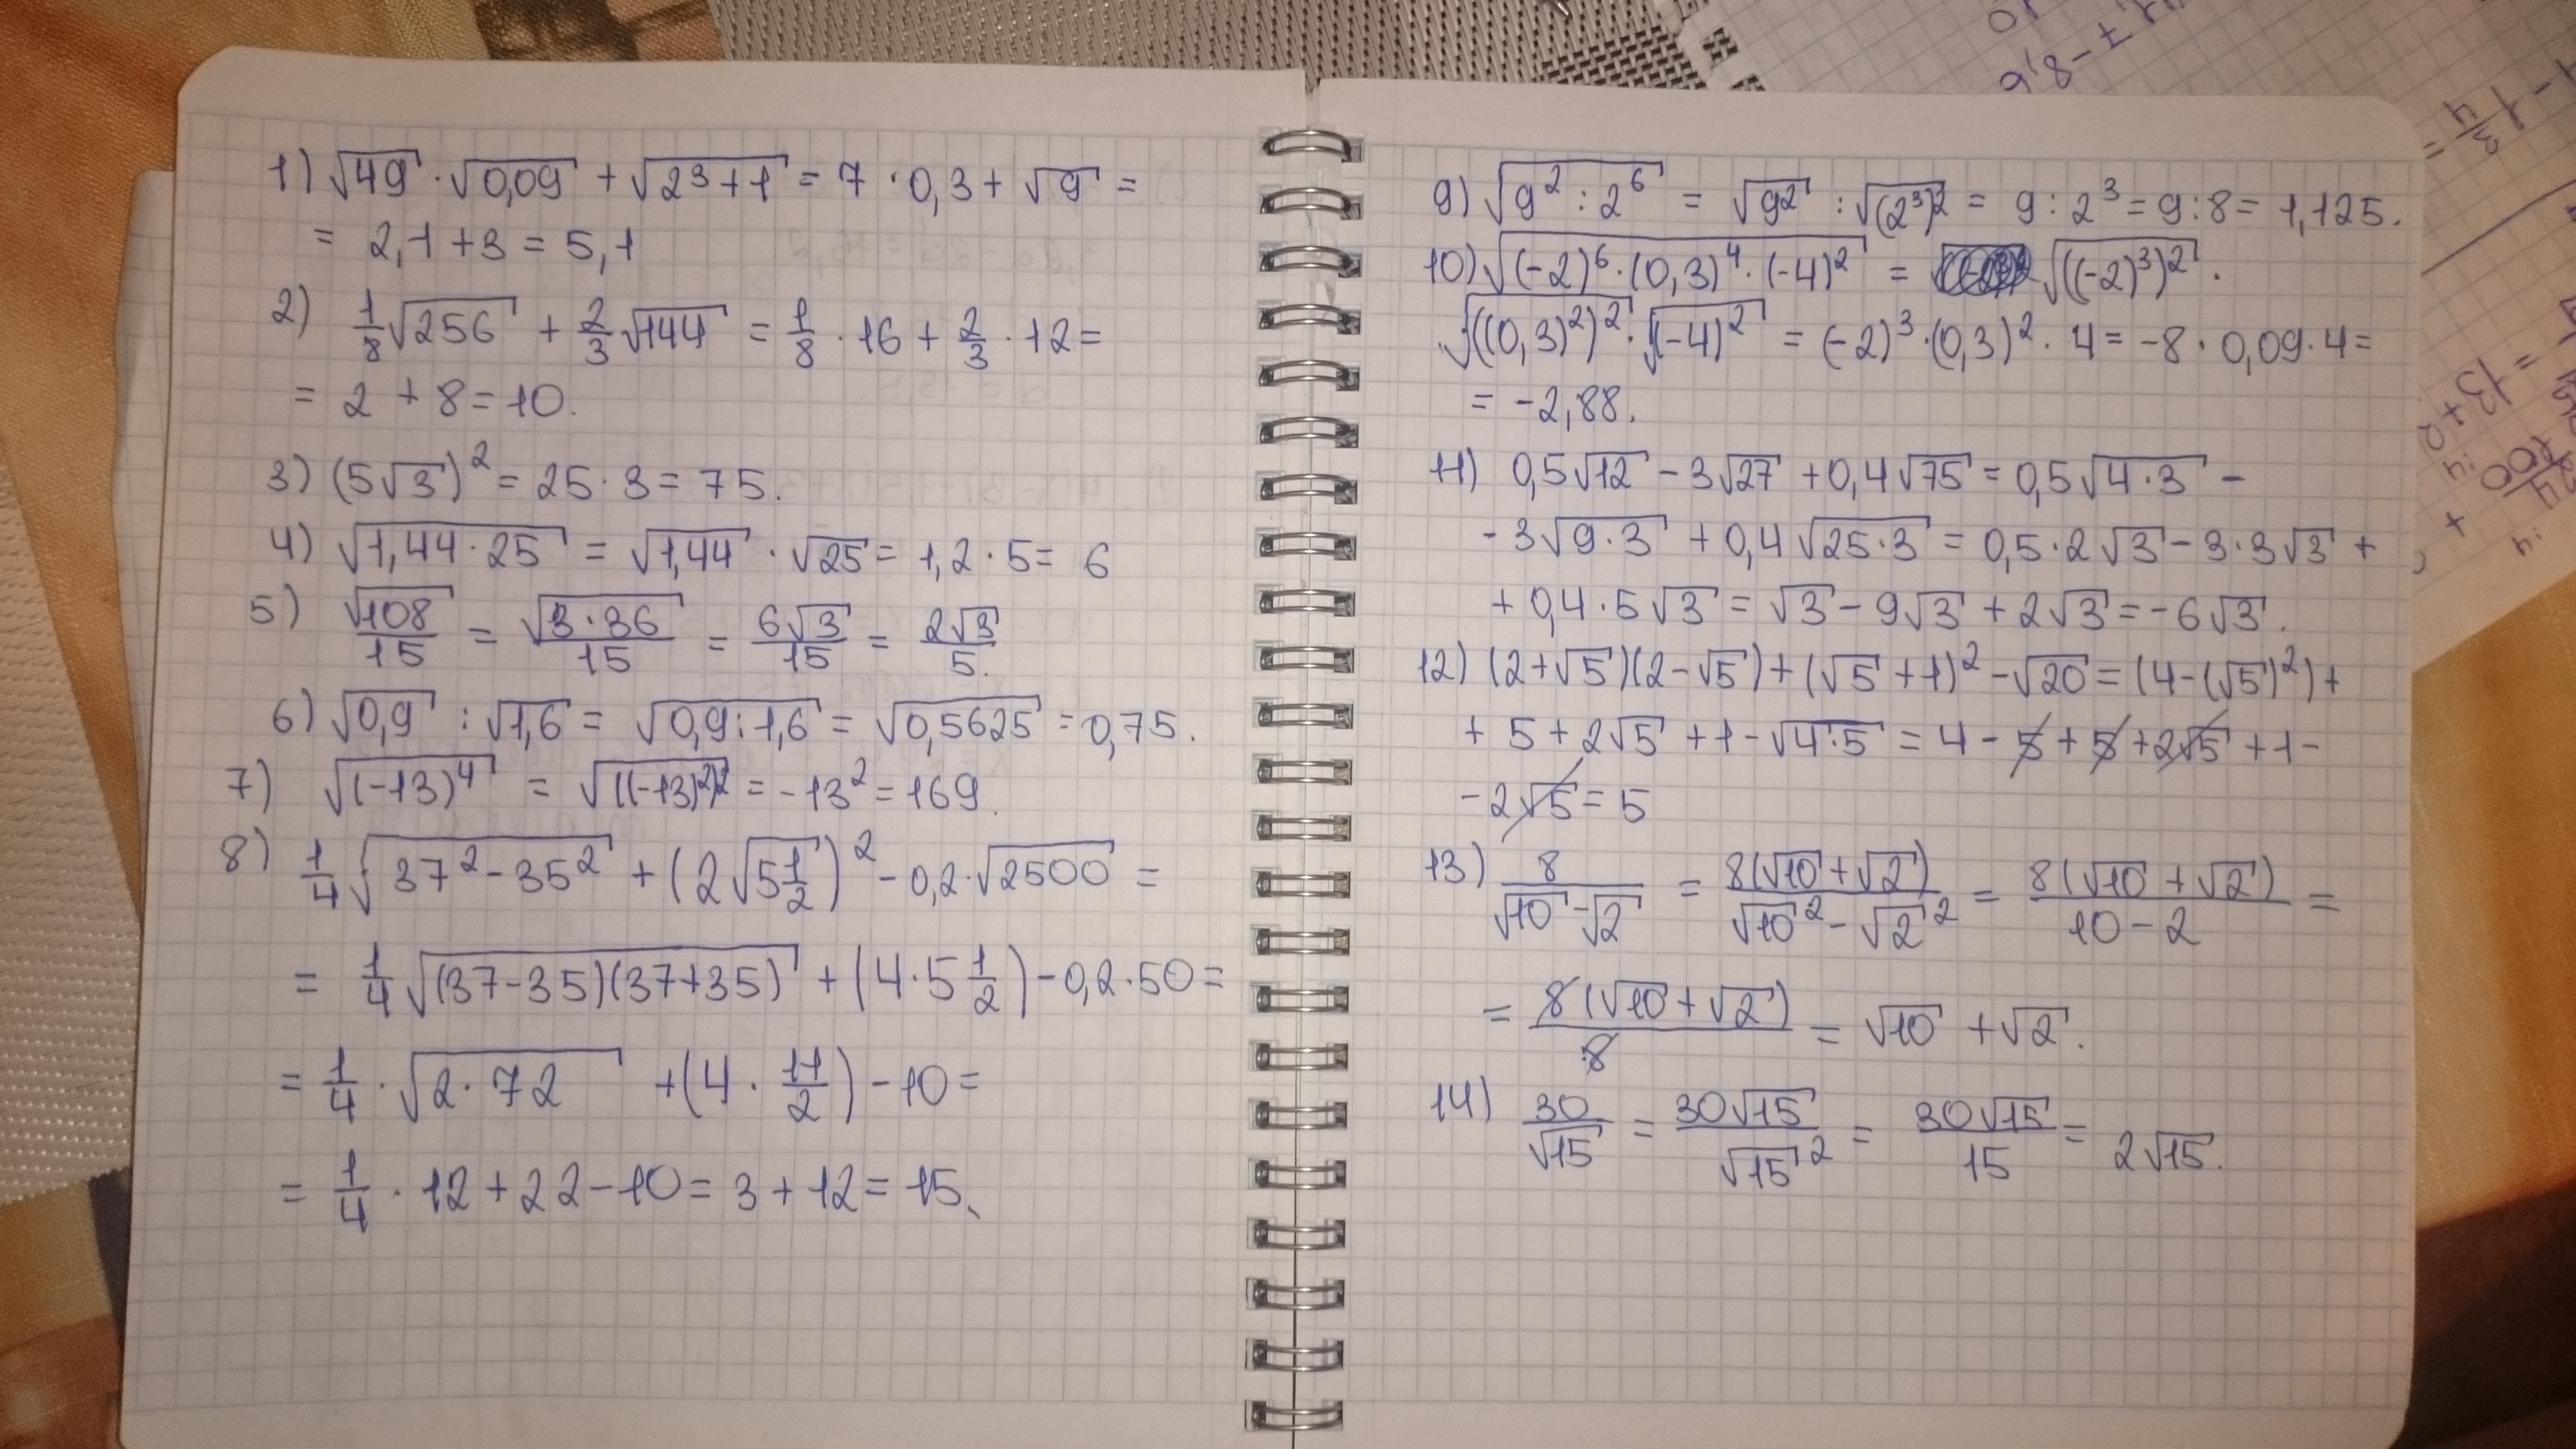 1) √49 · √0,09 + √(2³+1) = 7 · 0,3 + √9 =
= 2,1 + 3 = 5,1
2) 1/8 √256 + 2/3 √144 = 1/8 · 16 + 2/3 · 12 =
= 2 + 8 = 10.
3) (5√3)² = 25 · 3 = 75.
4) √(1,44 · 25) = √1,44 · √25 = 1,2 · 5 = 6
5) √108/15 = √(3 · 36)/15 = 6√3/15 = 2√3/5.
6) √0,9 : √1,6 = √(0,9 : 1,6) = √0,5625 = 0,75.
7) √(-13)⁴ = √((-13)²)² = -13² = 169.
8) 1/4 √(37² - 35²) + (2√(5 1/2))² - 0,2 · √2500 =
= 1/4 √((37-35)(37+35)) + (4 · 5 1/2) - 0,2 · 50 =
= 1/4 · √(2 · 72) + (4 · 11/2) - 10 =
= 1/4 · 12 + 22 - 10 = 3 + 12 = 15.
9) √(9² : 2⁶) = √9² : √(2³)² = 9 : 2³ = 9 : 8 = 1,125.
10) √((-2)⁶ · (0,3)⁴ · (-4)²) = √((-2)³)² ·
· √((0,3)²)² · √(-4)² = (-2)³ · (0,3)² · 4 = -8 · 0,09 · 4 =
= -2,88.
11) 0,5√12 - 3√27 + 0,4√75 = 0,5√(4 · 3) -
- 3√(9 · 3) + 0,4√(25 · 3) = 0,5 · 2√3 - 3 · 3√3 +
+ 0,4 · 5√3 = √3 - 9√3 + 2√3 = -6√3.
12) (2+√5)(2-√5) + (√5+1)² - √20 = (4 - (√5)²) +
+ 5 + 2√5 + 1 - √(4 · 5) = 4 - 5 + 5 + 2√5 + 1 -
- 2√5 = 5
13) 8/(√10 - √2) = 8(√10 + √2)/(√10² - √2²) = 8(√10 + √2)/(10 - 2) =
= 8(√10 + √2)/8 = √10 + √2.
14) 30/√15 = 30√15/√15² = 30√15/15 = 2√15.